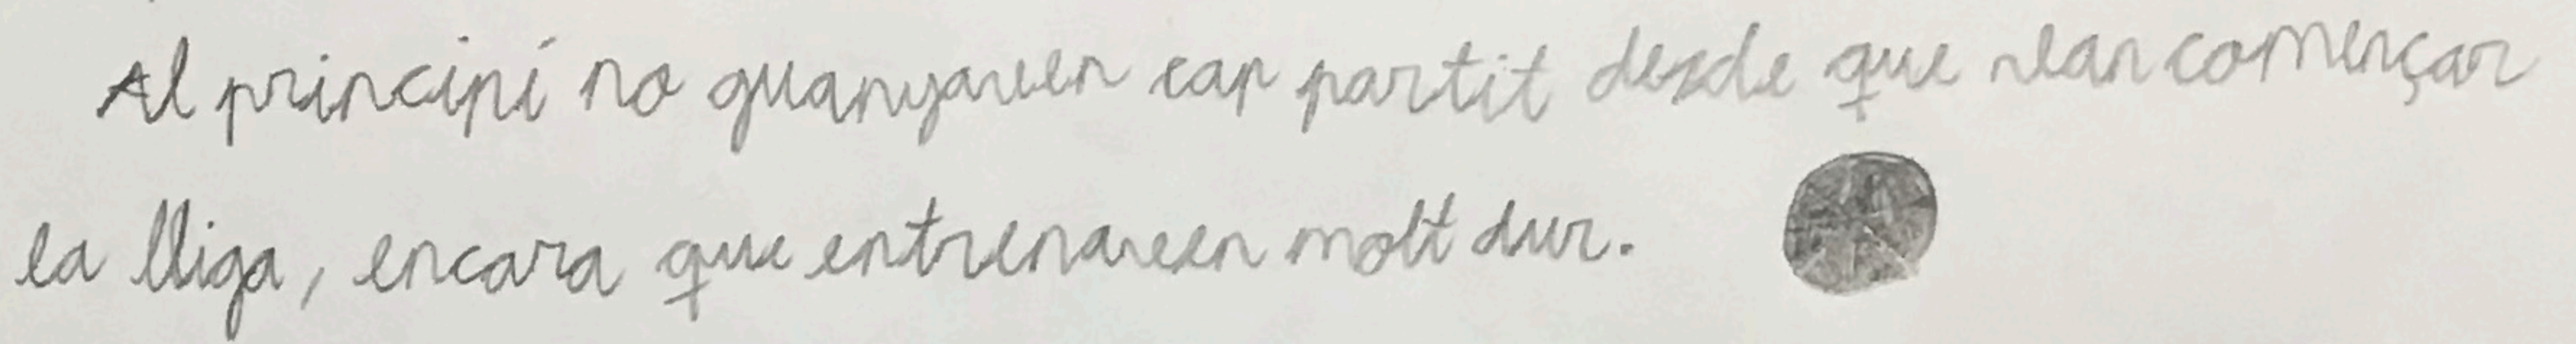 Al principi no guanyaven cap partit desde que van començar
la lliga, encara que entrenaven molt dur.